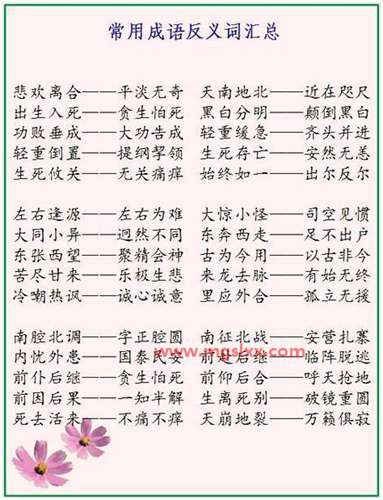 常用成语反义词汇总
悲欢离合——平淡无奇 天南地北——近在咫尺
出生入死——贪生怕死 黑白分明——颠倒黑白
功败垂成——大功告成 轻重缓急——齐头并进
轻重倒置——提纲挈领 生死存亡——安然无恙
生死攸关——无关痛痒 始终如一——出尔反尔
左右逢源——左右为难 大惊小怪——司空见惯
大同小异——迥然不同 东奔西走——足不出户
东张西望——聚精会神 古为今用——以古非今
苦尽甘来——乐极生悲 来龙去脉——有始无终
冷嘲热讽——诚心诚意 里应外合——孤立无援
南腔北调——字正腔圆 南征北战——安营扎寨
内忧外患——国泰民安 前赴后继——临阵脱逃
www.mgsbxx.com
前仆后继——贪生怕死 前仰后合——呼天抢地
前因后果——一知半解 生离死别——破镜重圆
死去活来——不痛不痒 天崩地裂——万籁俱寂